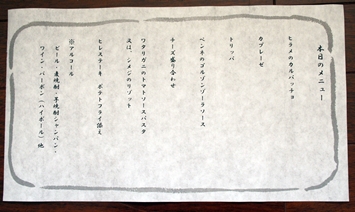 本日のメニュー
ヒラメのカルパッチョ
カプレーゼ
トリッパ
ペンネのゴルゴンゾーラソース
チーズ盛り合わせ
ワタリガニのトマトソースパスタ
又は、シメジのリゾット
ヒレステーキ　ポテトフライ添え
※アルコール
ビール・麦焼酎・芋焼酎シャンパン・
ワイン・バーボン（ハイボール）他